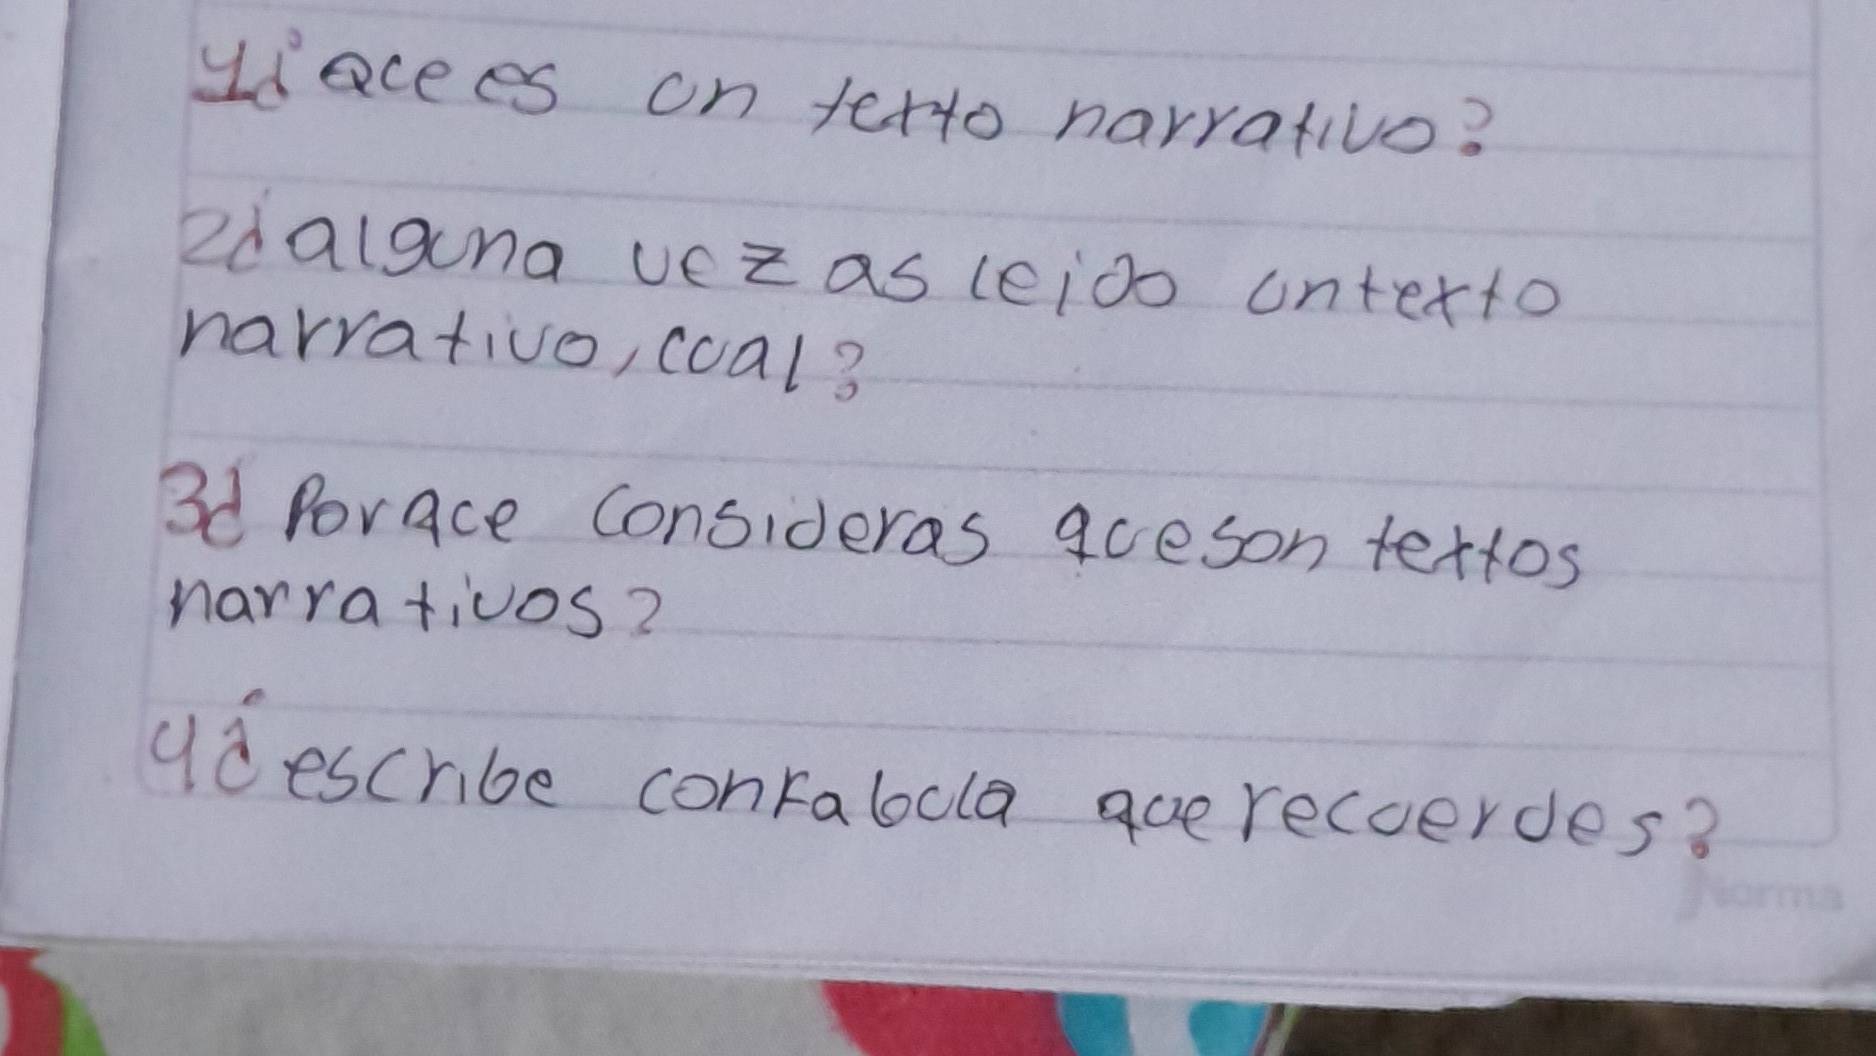 1¿ Qce es on texto narrativo?
2¿ alguna vez as leido untexto
narrativo, cual?
3¿ Porqce consideras qceson textos
narrativos?
4¿ escribe conFabula que recuerdes?
Norma